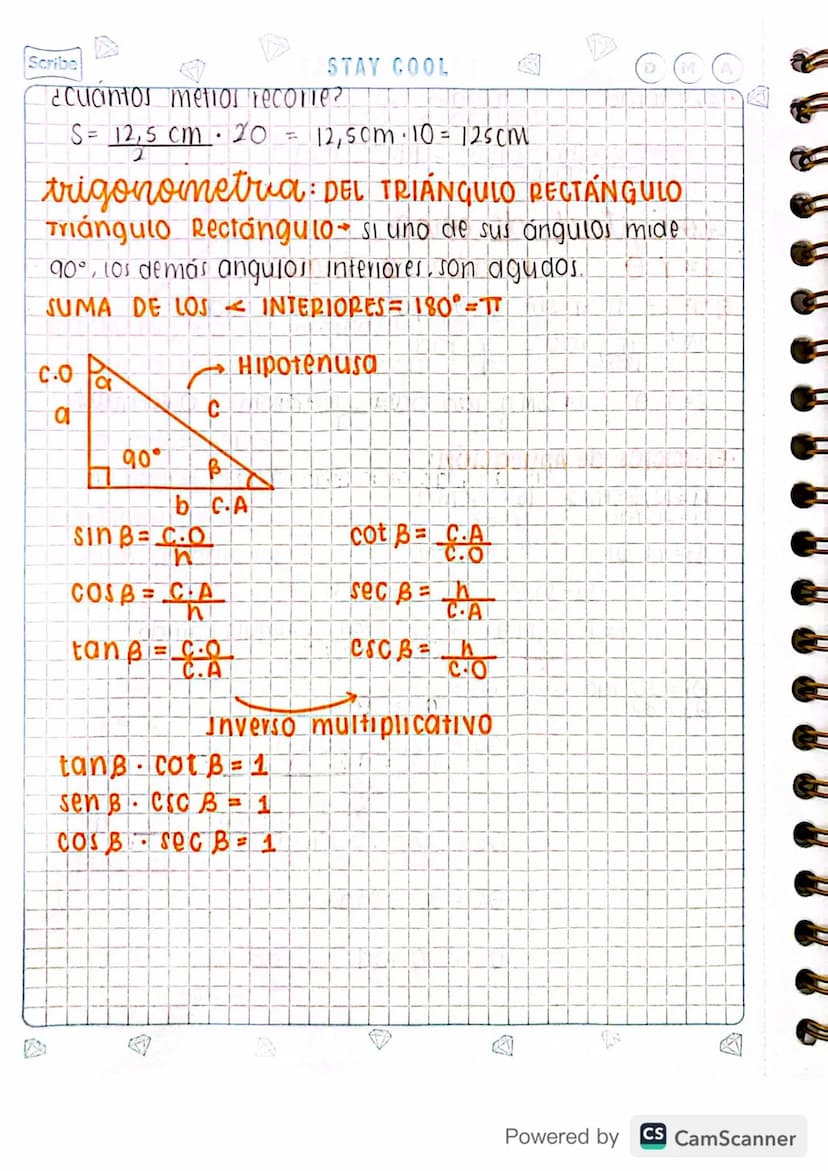 Scribe
STAY COOL
D M A
¿Cuántos metros recorre?
S= 12,5 cm / 2 · 20 = 12,5cm · 10 = 125cm
trigonometria: DEL TRIÁNGULO RECTÁNGULO
Triángulo Rectángulo→ si uno de sus ángulos mide
90°, los demás angulos interiores, son agudos.
SUMA DE LOS ∢ INTERIORES = 180° = π
C.O
α
Hipotenusa
a
c
90°
β
b C.A
sin β = C.O / h
cot β = C.A / C.O
cos β = C.A / h
sec β = h / C.A
tan β = C.O / C.A
csc β = h / C.O
Inverso multiplicativo
tan β · cot β = 1
sen β · csc β = 1
cos β · sec β = 1
Powered by CS CamScanner